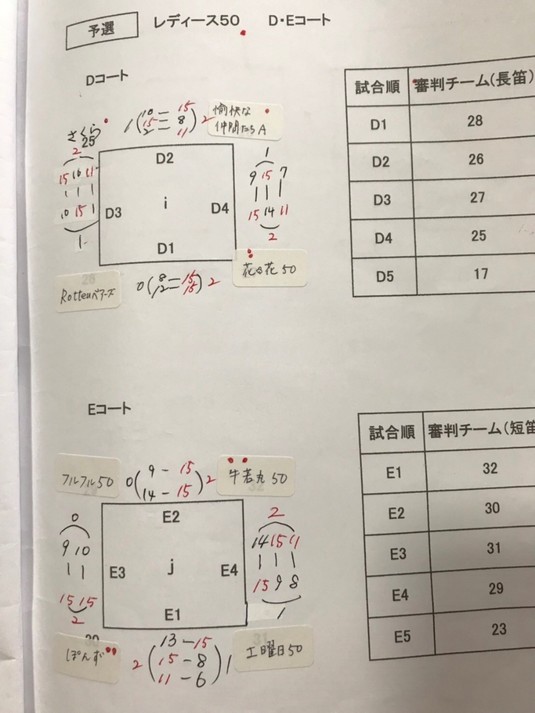 予選 レディース50 D・Eコート
Dコート
試合順 審判チーム(長笛)
D1 28
D2 26
D3 27
D4 25
D5 17
さくら
25
1 (10 - 15
15 - 8
2 - 11) 2
愉快な
仲間たちA
2
15 10 11
10 15 1
1
D2
D3 i D4
D1
1
9 15 7
15 14 11
2
Rottenベアーズ
0 (8 - 15
12 - 15) 2
花々花 50
Eコート
試合順 審判チーム(短笛
E1 32
E2 30
E3 31
E4 29
E5 23
フルフル50
0 (9 - 15
14 - 15) 2
牛若丸 50
0
9 10
15 15
2
E2
E3 j E4
E1
2
14 15 11
15 9 8
1
ぽんず
2 (13 - 15
15 - 8
11 - 6) 1
31
土曜日50